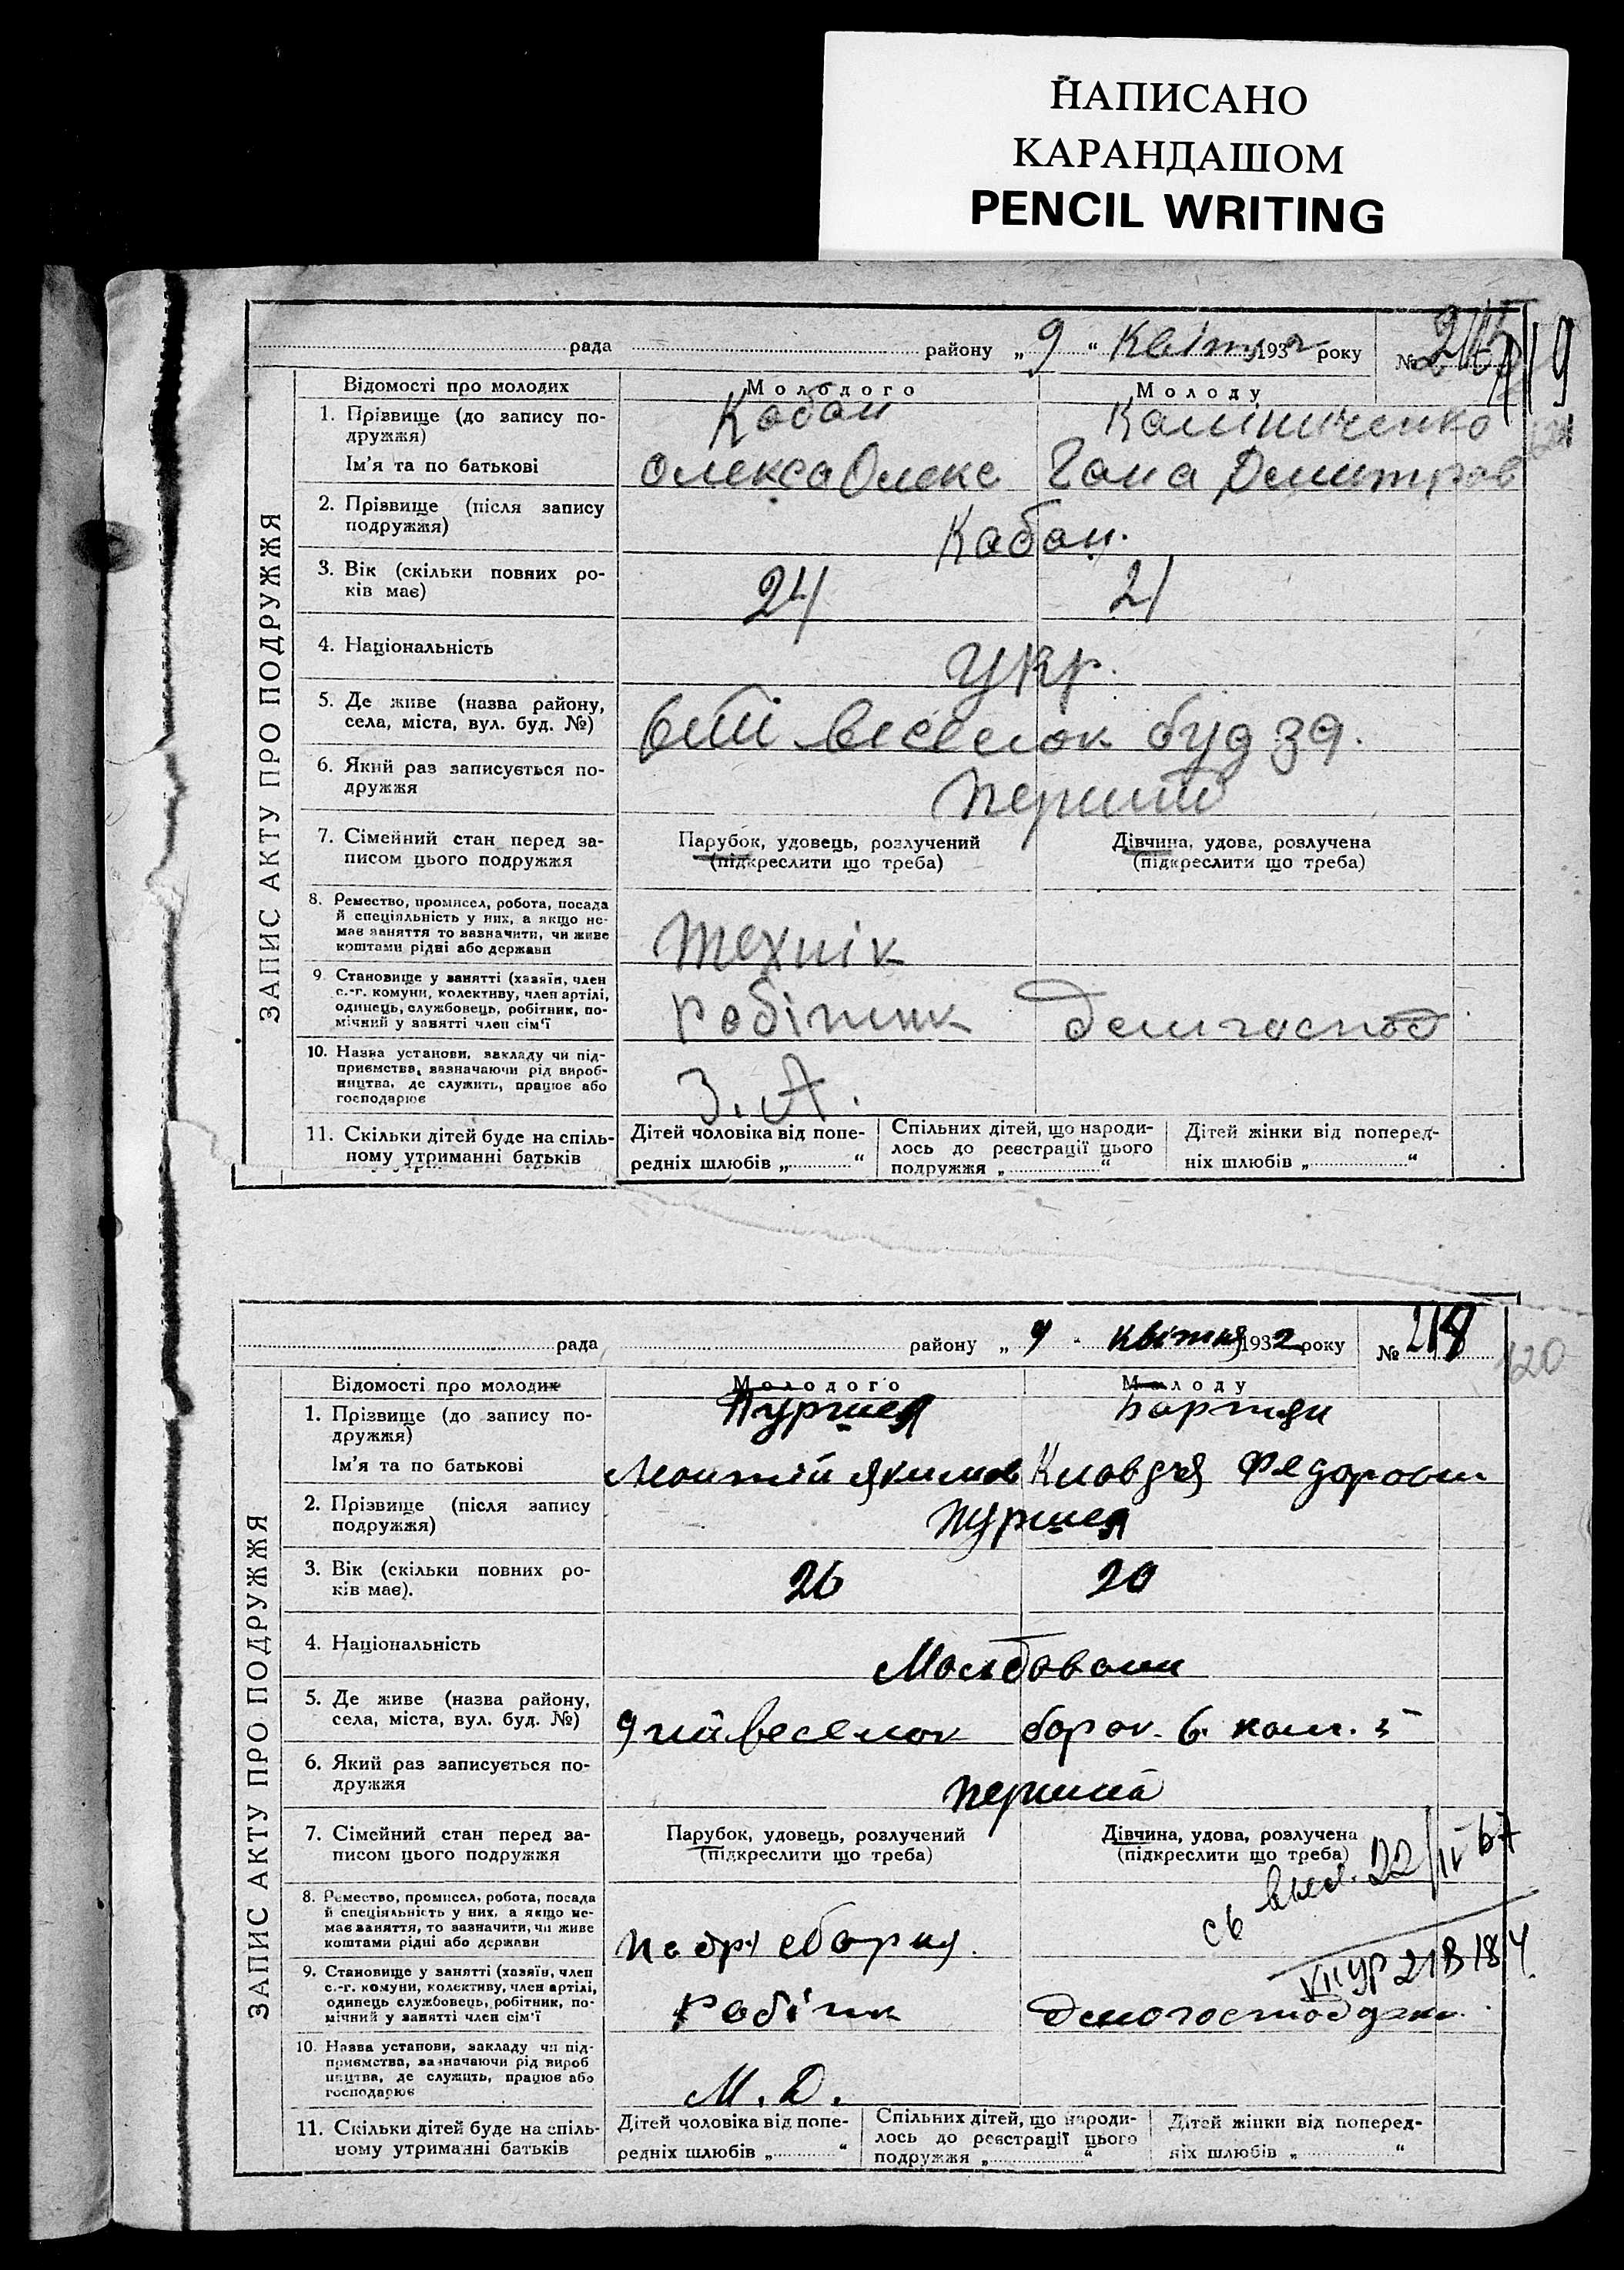 НАПИСАНО
КАРАНДАШОМ
PENCIL WRITING
рада району „ 9 “ Квітня 1932 року №
119
ЗАПИС АКТУ ПРО ПОДРУЖЖЯ
Відомості про молодих Молодого Молоду
1. Прізвище (до запису по-
дружжя) Кабан Калініченко
Ім'я та по батькові Олекса Олекс Гана Демитров
2. Прізвище (після запису
подружжя) Кабан.
3. Вік (скільки повних ро-
ків має) 24 21
4. Національність Укр.
5. Де живе (назва району,
села, міста, вул. буд. №) 6тй веселок буд 39.
6. Який раз записується по-
дружжя перший
7. Сімейний стан перед за-
писом цього подружжя
Парубок, удовець, розлучений
(підкреслити що треба)
Дівчина, удова, розлучена
(підкреслити що треба)
8. Ремество, промисел, робота, посада
й спеціяльність у них, а якщо не-
має заняття то зазначити, чи живе
коштами рідні або держави
технік
9. Становище у занятті (хазяїн, член
с.-г. комуни, колективу, член артілі,
одинець, службовець, робітник, по-
мічний у занятті член сім'ї
робітник домгоспод
10. Назва установи, закладу чи під-
приємства, зазначаючи рід вироб-
ництва, де служить, працює або
господарює
З. А.
11. Скільки дітей буде на спіль-
ному утриманні батьків
Дітей чоловіка від попе-
редніх шлюбів „ “
Спільних дітей, що народи-
лось до реєстрації цього
подружжя „ “
Дітей жінки від поперед-
ніх шлюбів „ “
рада району „ 9 “ квітня 1932 року № 218
120
ЗАПИС АКТУ ПРО ПОДРУЖЖЯ
Відомості про молодих Молодого Молоду
1. Прізвище (до запису по-
дружжя)
Ім'я та по батькові Якимов Клавдія Федоровн
2. Прізвище (після запису
подружжя)
3. Вік (скільки повних ро-
ків має). 26 20
4. Національність Молдовани
5. Де живе (назва району,
села, міста, вул. буд. №) 9тй веселок барак. 6 ком. 5
6. Який раз записується по-
дружжя перший
7. Сімейний стан перед за-
писом цього подружжя
Парубок, удовець, розлучений
(підкреслити що треба)
Дівчина, удова, розлучена
(підкреслити що треба)
св выд. 22/IV 67
8. Ремество, промисел, робота, посада
й спеціяльність у них, а якщо не-
має заняття, то зазначити, чи живе
коштами рідні або держави
9. Становище у занятті (хазяїн, член
с.-г. комуни, колективу, член артілі,
одинець службовець, робітник, по-
мічний у занятті член сім'ї
робітник
10. Назва установи, закладу чи під-
приємства, зазначаючи рід вироб
ництва, де служить, працює або
господарює
М. Д.
11. Скільки дітей буде на спіль-
ному утриманні батьків
Дітей чоловіка від попе-
редніх шлюбів „ “
Спільних дітей, що народи-
лось до реєстрації цього
подружжя „ “
Дітей жінки від поперед-
ніх шлюбів „ “